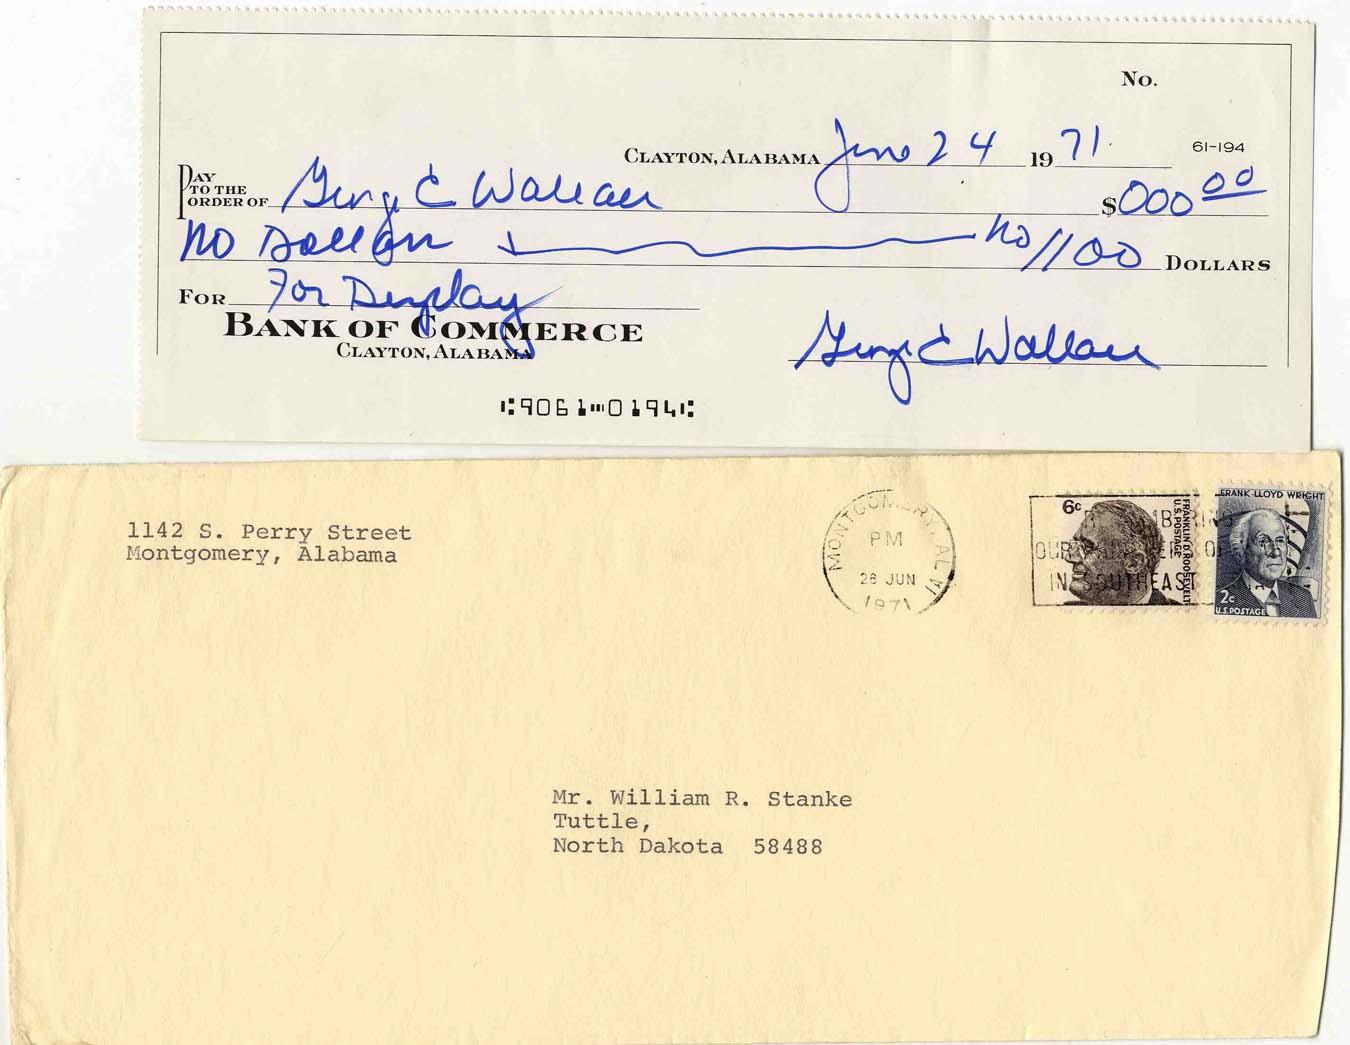 No.
CLAYTON, ALABAMA June 24 1971
61-194
PAY TO THE ORDER OF George C Wallace $000 00
No Dollars no/100 DOLLARS
FOR For Display
BANK OF COMMERCE
CLAYTON, ALABAMA
George C Wallace
⑆9061⑉0194⑆
1142 S. Perry Street
Montgomery, Alabama
MONTGOMERY, AL
PM
26 JUN
1971
6c
FRANKLIN D. ROOSEVELT
U.S. POSTAGE
FRANK LLOYD WRIGHT
2c
U.S. POSTAGE
OUR
IN SOUTHEAST
Mr. William R. Stanke
Tuttle,
North Dakota 58488